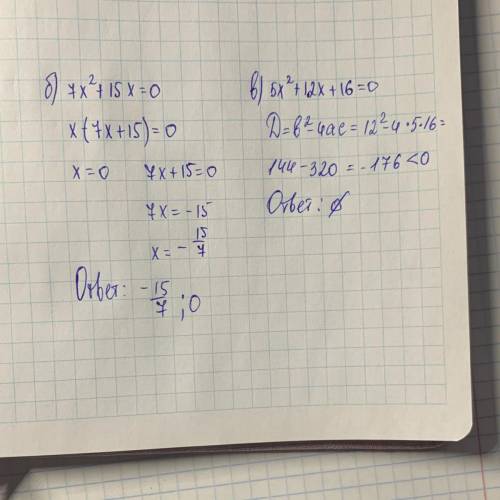 б) 7x²+15x=0
x(7x+15)=0
x=0 7x+15=0
7x=-15
x=-15/7
Ответ: -15/7; 0
в) 5x²+12x+16=0
D=b²-4ac=12²-4·5·16=
144-320=-176<0
Ответ: ∅